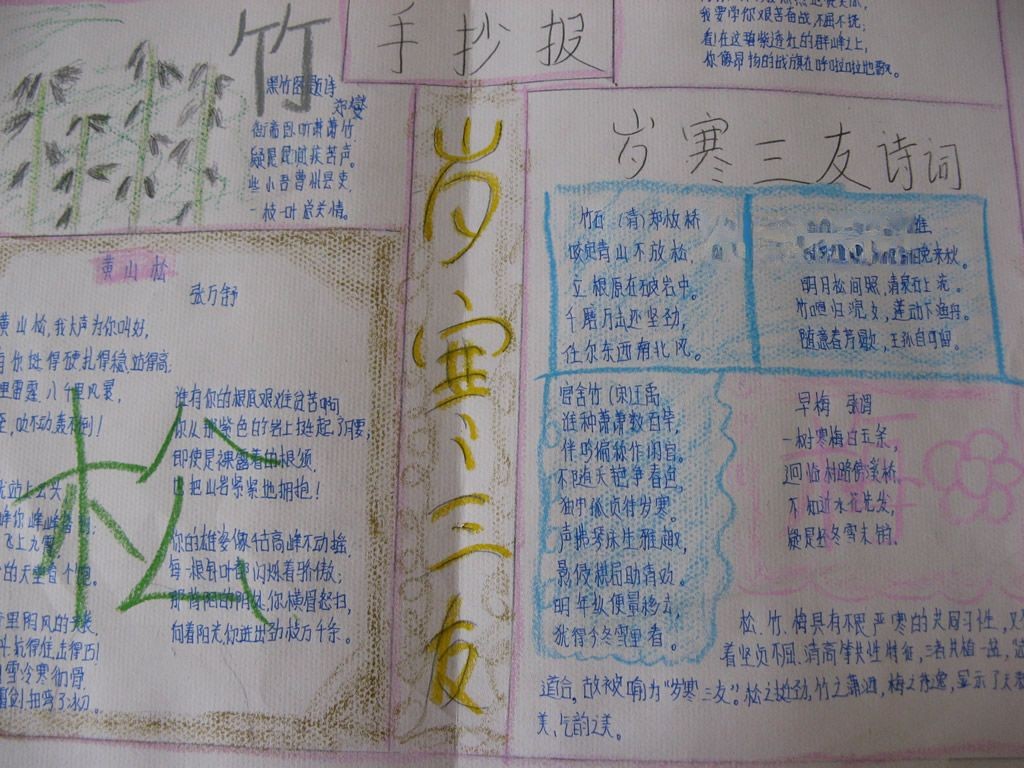 竹
手抄报
我要学你艰苦奋战,不屈不挠;
看!在这碧紫透红的群峰之上,
你像昂扬的战旗在呼啦啦地飘。
墨竹图题诗
郑燮
衙斋卧听萧萧竹
疑是民间疾苦声。
些小吾曹州县吏
一枝一叶总关情。
黄山松
张万舒
黄山松,我大声为你叫好,
你挺得硬扎得稳站得高;
雷霆,八千里风暴,
吹不动轰不倒!
站上云头
峰你峰峰
飞上九霄
的天空
松
谁有你的根底艰难贫苦啊
你从那紫色的岩上挺起了腰,
即使是裸露着的根须
也把山岩紧紧地拥抱!
你的雄姿像古高峰不动摇
每一根针叶都闪烁着骄傲;
那背阳的阴处,你横眉怒扫,
向着阳光,你迸出劲枝万千条。
岁寒三友
岁寒三友诗词
竹石 (清)郑板桥
咬定青山不放松,
立根原在破岩中。
千磨万击还坚劲,
任尔东西南北风。
维
晚来秋。
明月松间照,清泉石上流。
竹喧归浣女,莲动下渔舟。
随意春芳歇,王孙自可留。
官舍竹 (宋)王禹
谁种萧萧数百竿,
伴吟偏称作闲官。
不随夭艳争春色
独守孤贞待岁寒。
声拂琴床生雅趣,
影侵棋局助清欢。
明年纵便量移去,
犹得今冬雪里看。
早梅 张谓
一树寒梅白玉条,
迥临村路傍溪桥
不知近水花先发,
疑是经冬雪未销。
松、竹、梅具有不畏严寒的共同习性,
着坚贞不屈、清高
道合,故被喻为“岁寒三友”。松之苍劲,竹之潇洒,梅之
美、气韵之美。